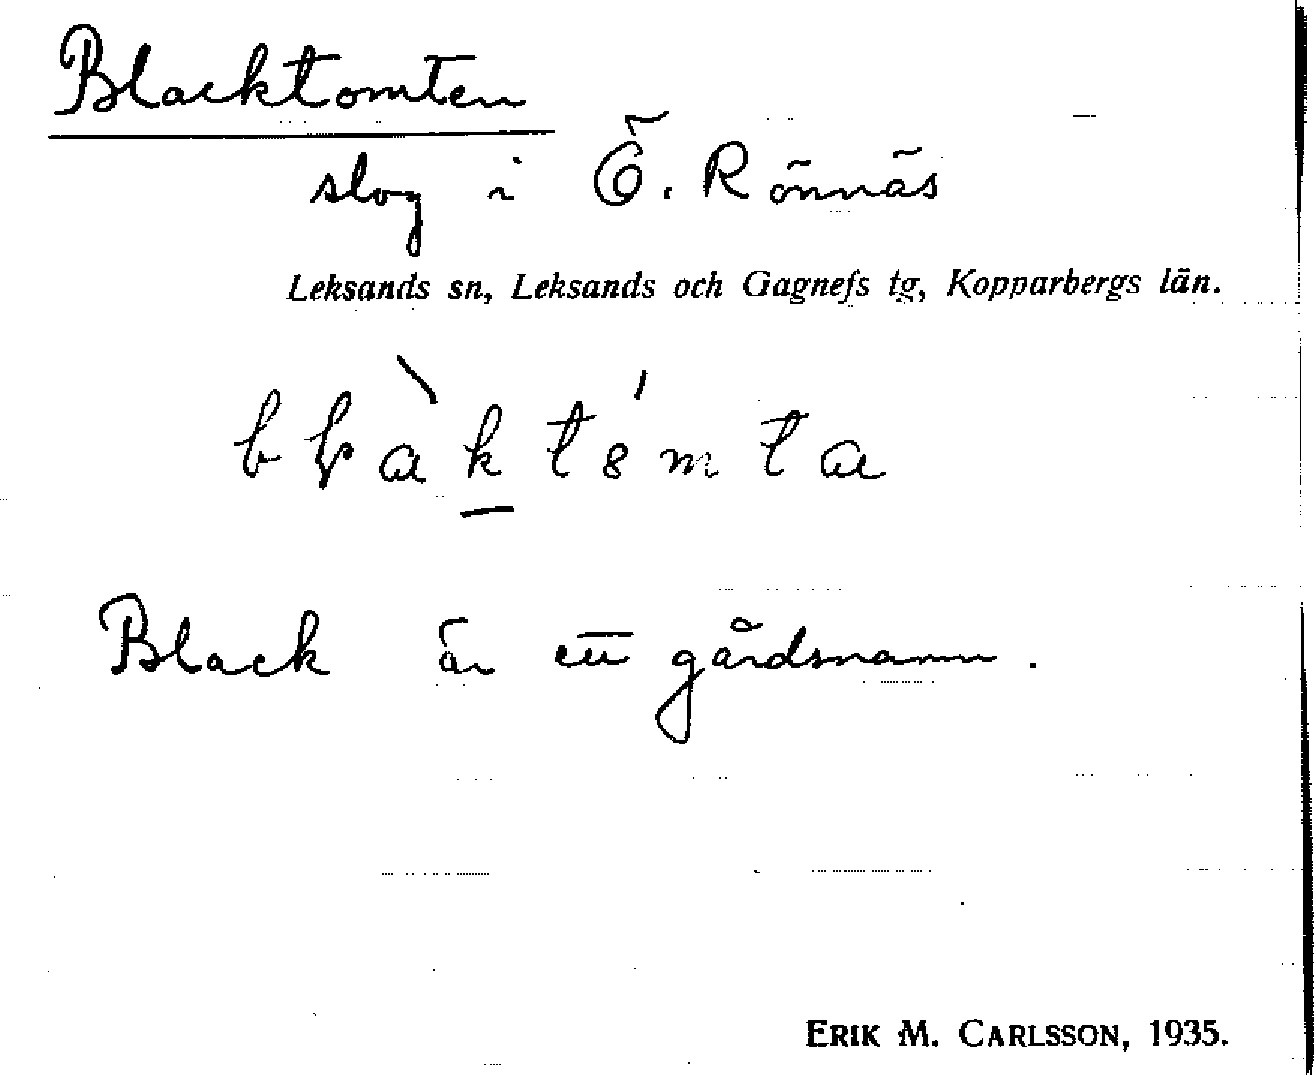 Blacktomten
slog i Ö. Rönnäs
Leksands sn, Leksands och Gagnefs tg, Kopparbergs län.
Black är ett gårdsnamn.
ERIK M. CARLSSON, 1935.